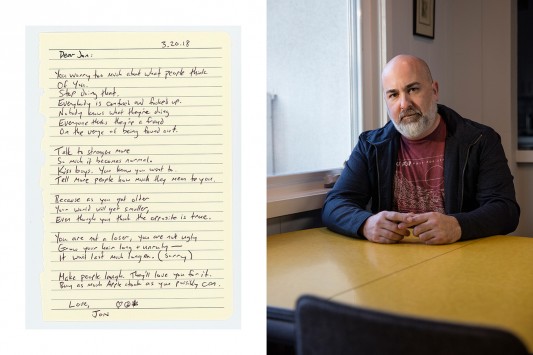 3.20.18
Dear Jon:
You worry too much about what people think
Of You.
Stop doing that.
Everybody is confused and fucked up.
Nobody knows what they're doing
Everyone thinks they're a fraud
On the verge of being found out.
Talk to strangers more
So much it becomes normal.
Kiss boys. You know you want to.
Tell more people how much they mean to you.
Because as you get older
Your world will get smaller,
Even though you think the opposite is true.
You are not a loser, you are not ugly
Grow your hair long & unruly —
It won't last much longer. (Sorry)
Make people laugh. They'll love you for it.
Buy as much Apple stock as you possibly can.
Love,
Jon